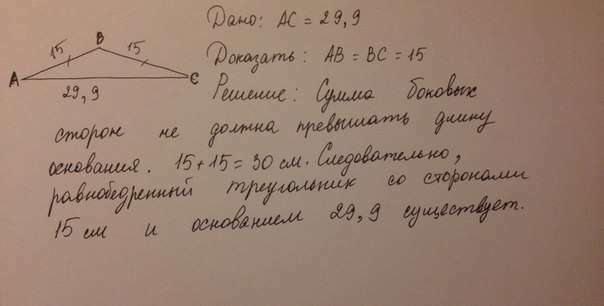 Дано: AC = 29,9
B
15
15
A
C
29,9
Доказать: AB = BC = 15
Решение: Сумма боковых
сторон не должна превышать длину
основания. 15+15=30 см. Следовательно,
равнобедренный треугольник со сторонами
15 см и основанием 29,9 существует.